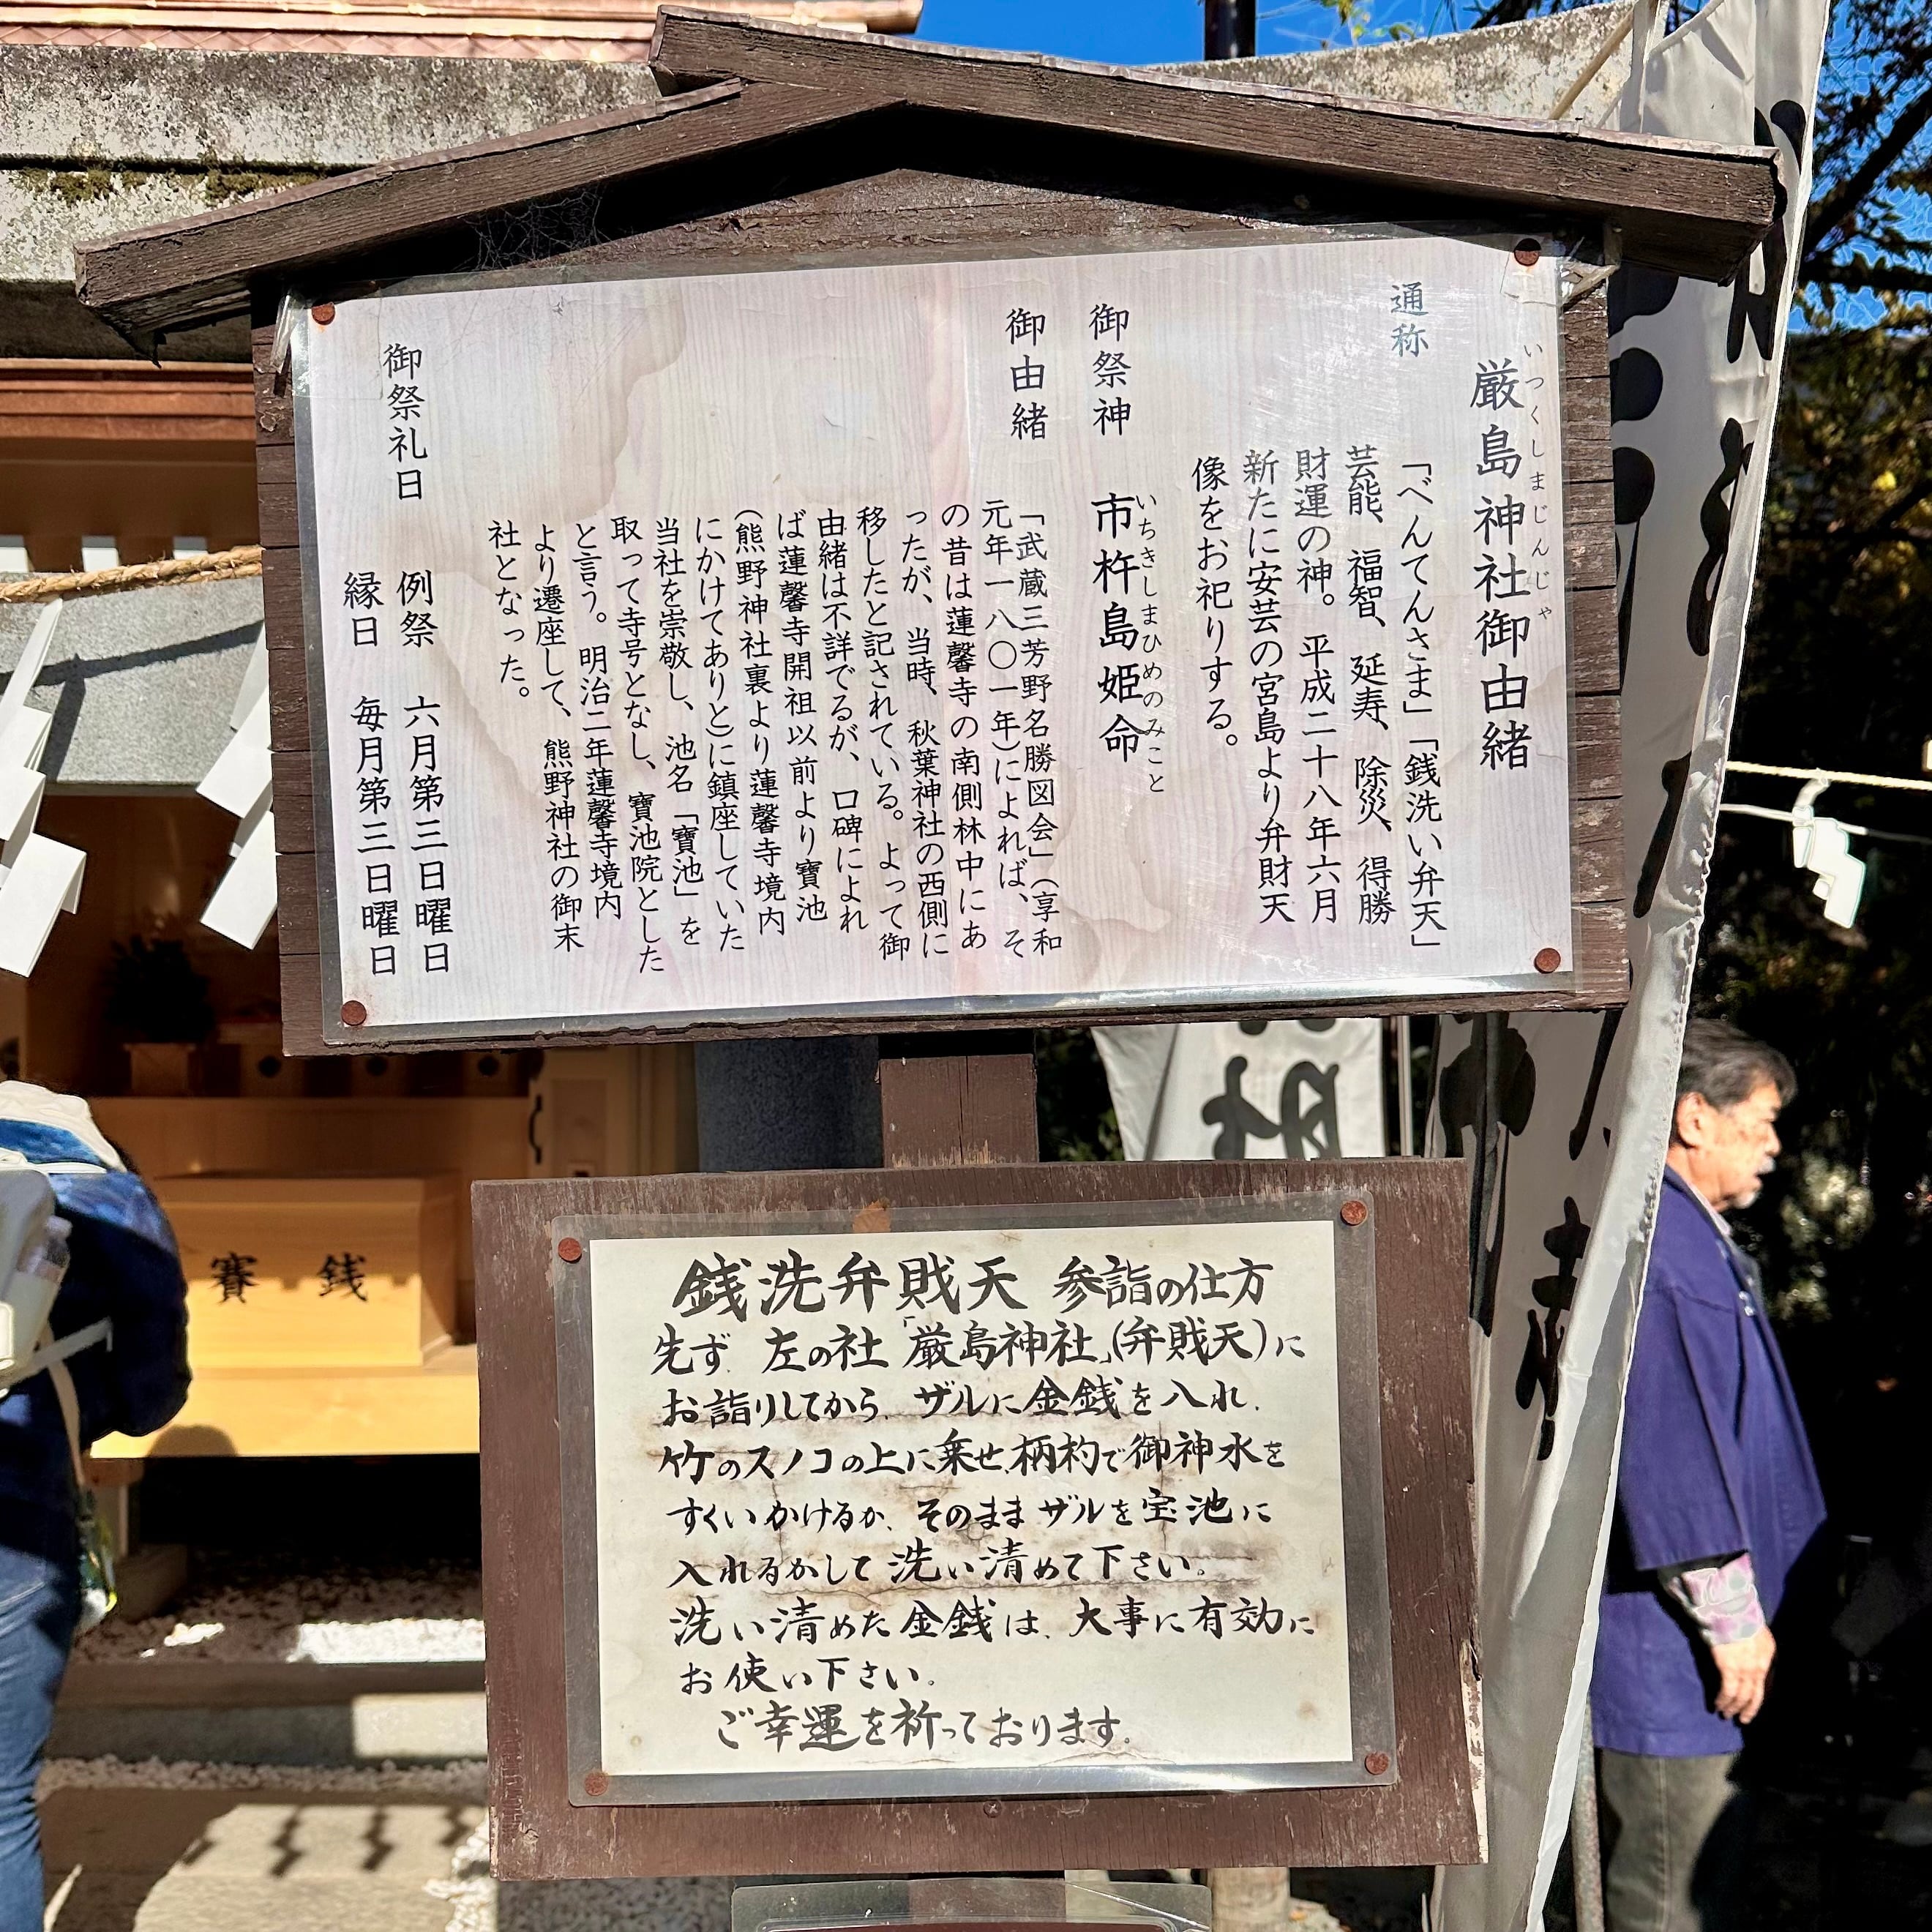 厳島神社御由緒
いつくしまじんじゃ
通称
「べんてんさま」「銭洗い弁天」
芸能、福智、延寿、除災、得勝
財運の神。平成二十八年六月
新たに安芸の宮島より弁財天
像をお祀りする。
御祭神
市杵島姫命
いちきしまひめのみこと
御由緒
「武蔵三芳野名勝図会」(享和
元年一八〇一年)によれば、そ
の昔は蓮馨寺の南側林中にあ
ったが、当時、秋葉神社の西側に
移したと記されている。よって御
由緒は不詳でるが、口碑によれ
ば蓮馨寺開祖以前より寶池
(熊野神社裏より蓮馨寺境内
にかけてありと)に鎮座していた
当社を崇敬し、池名「寶池」を
取って寺号となし、寶池院とした
と言う。明治二年蓮馨寺境内
より遷座して、熊野神社の御末
社となった。
御祭礼日
例祭 六月第三日曜日
縁日 毎月第三日曜日
賽銭
銭洗弁財天 参詣の仕方
先ず 左の社「厳島神社」(弁財天)に
お詣りしてから、ザルに金銭を入れ、
竹のスノコの上に乗せ、柄杓で御神水を
すくいかけるか、そのままザルを宝池に
入れるかして洗い清めて下さい。
洗い清めた金銭は、大事に有効に
お使い下さい。
ご幸運を祈っております。